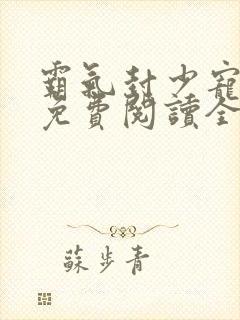 霸氣封少寵
免費閱讀全
蘇步青